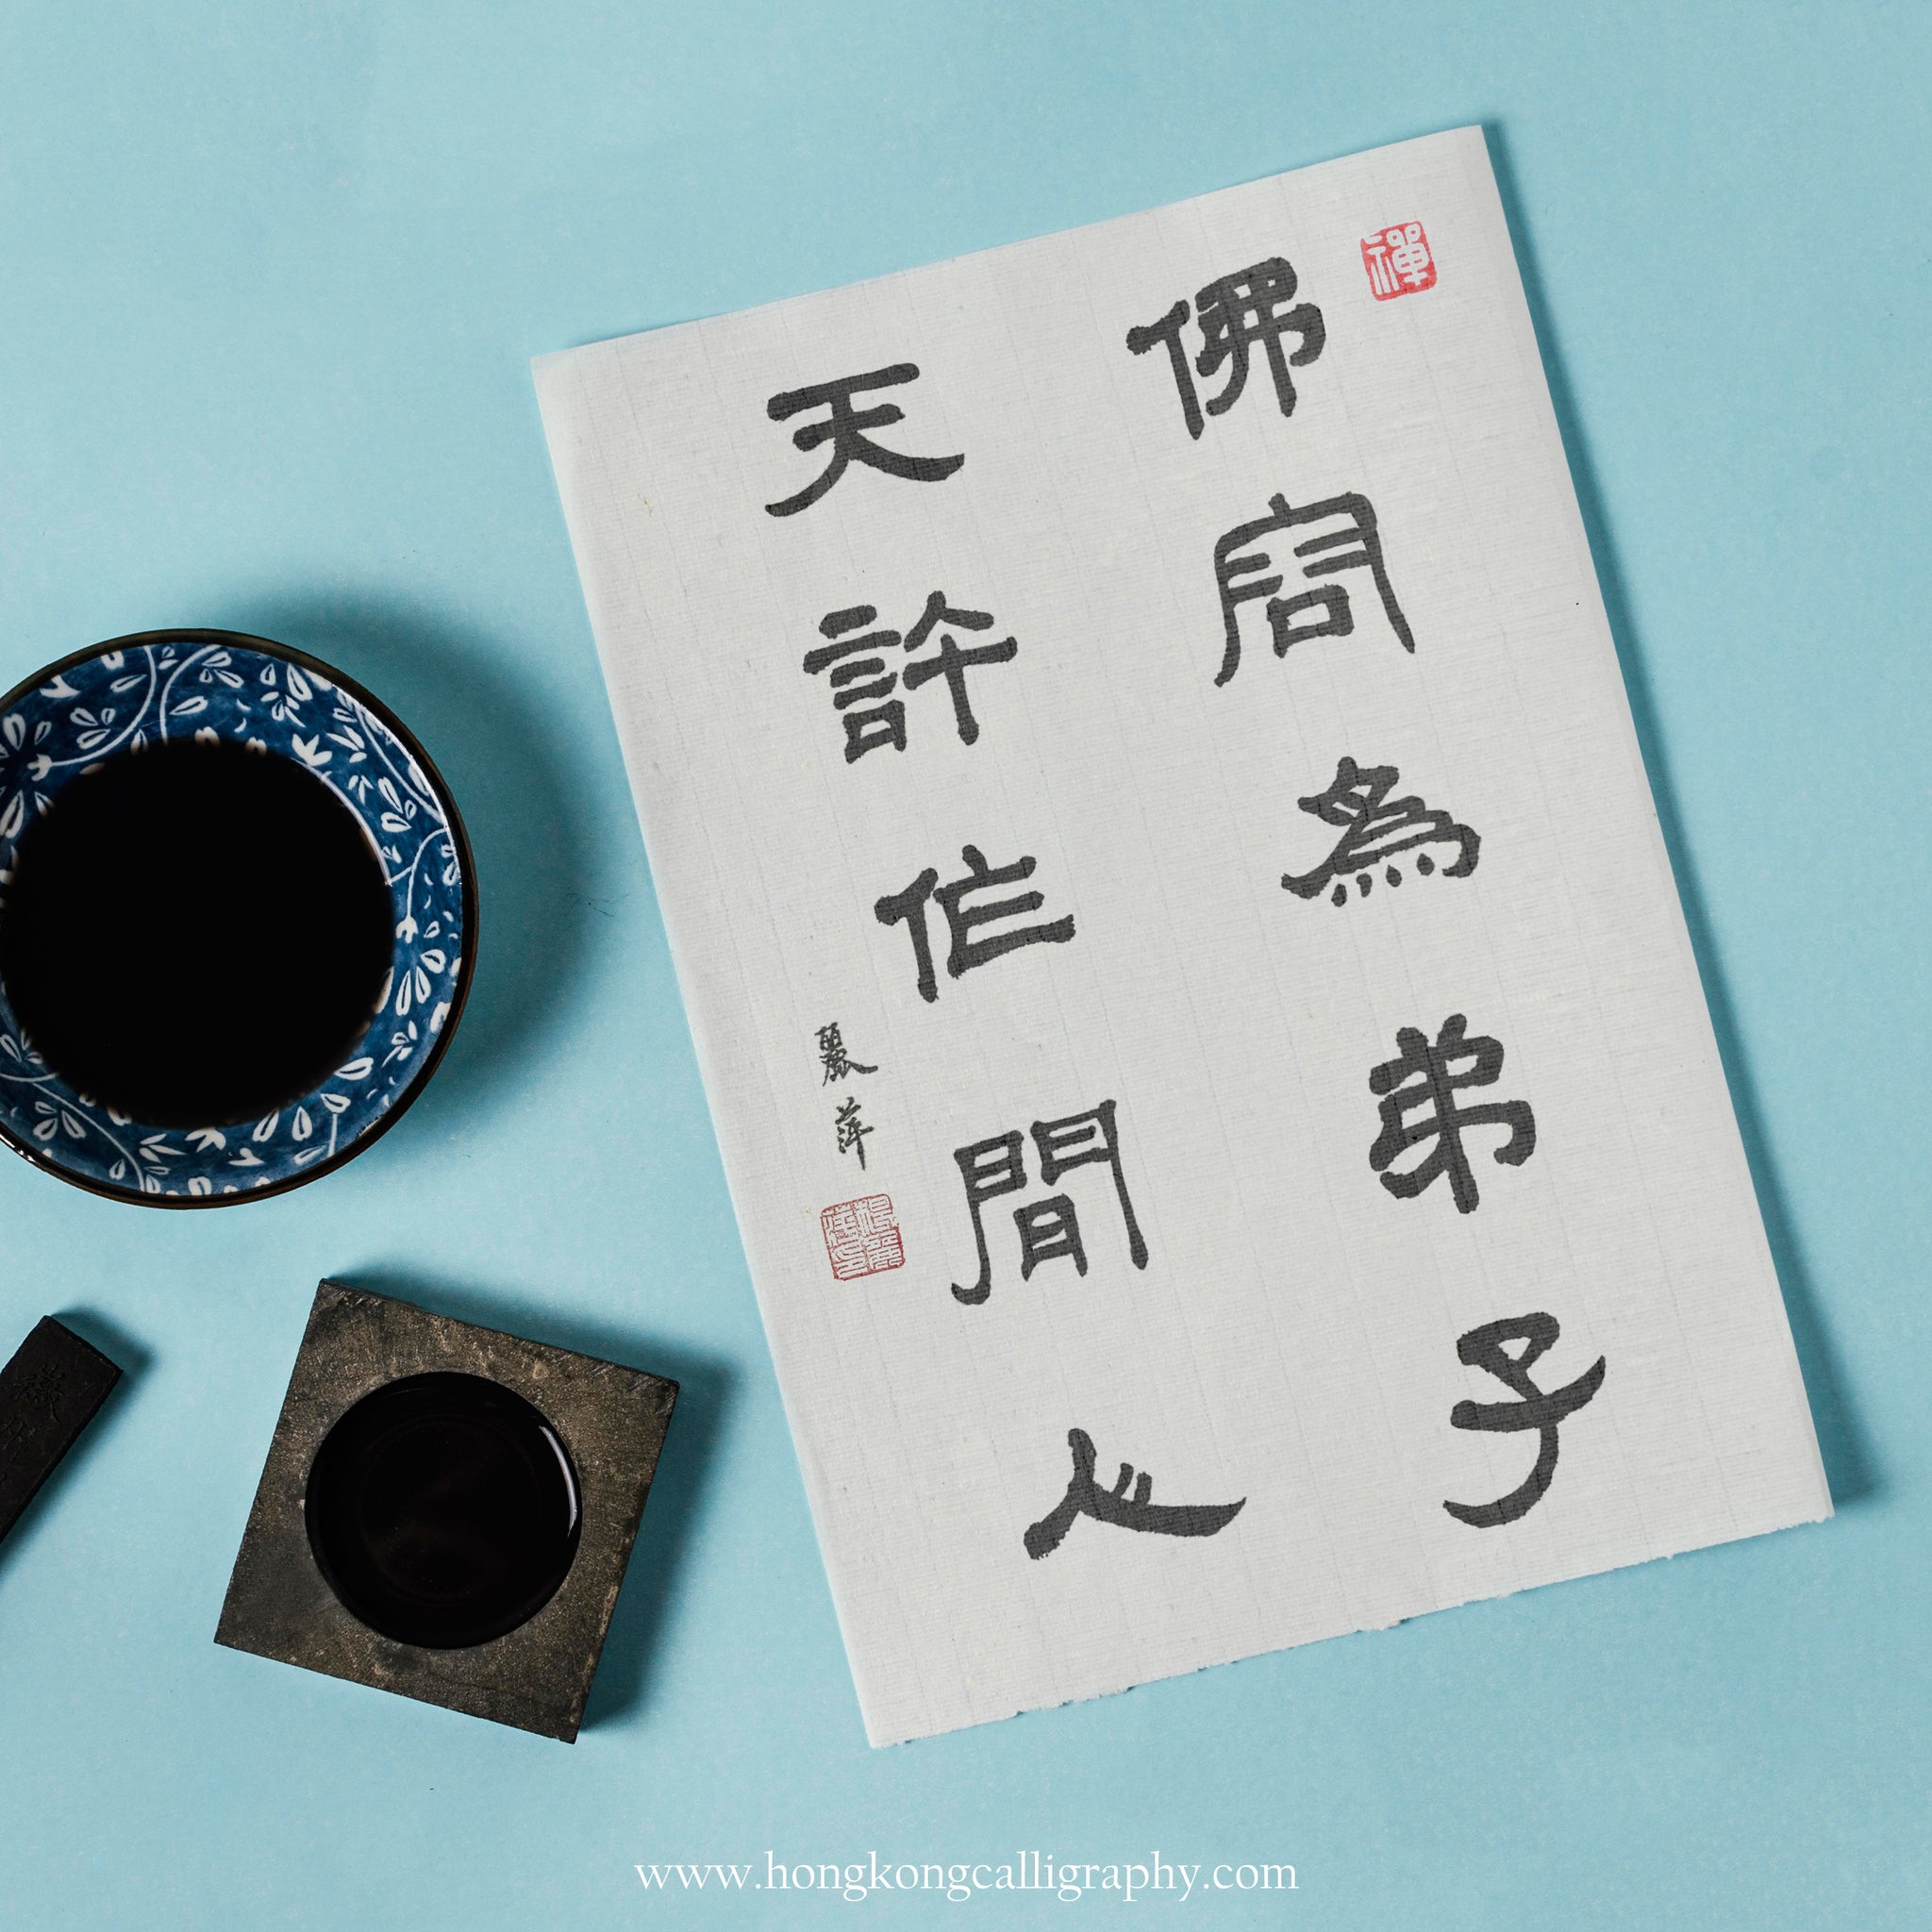 禪
佛容為弟子
天許作閒人
麗萍
www.hongkongcalligraphy.com